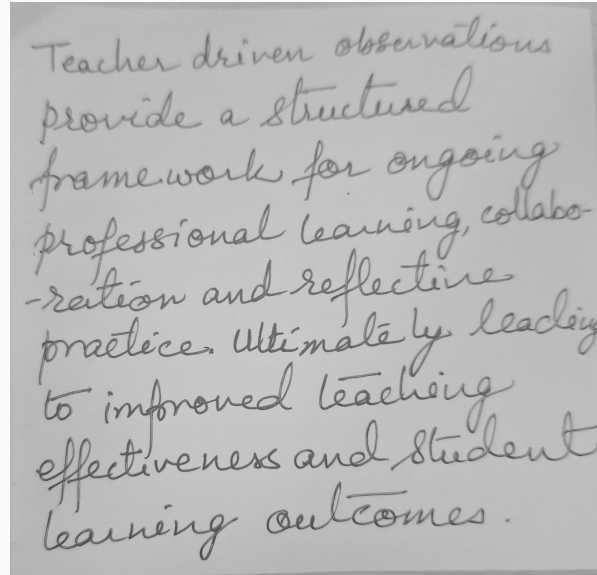 Teacher driven observations
provide a structured
framework for ongoing
professional learning, collabo-
-ration and reflective
practice. Ultimately leading
to improved teaching
effectiveness and student
learning outcomes.